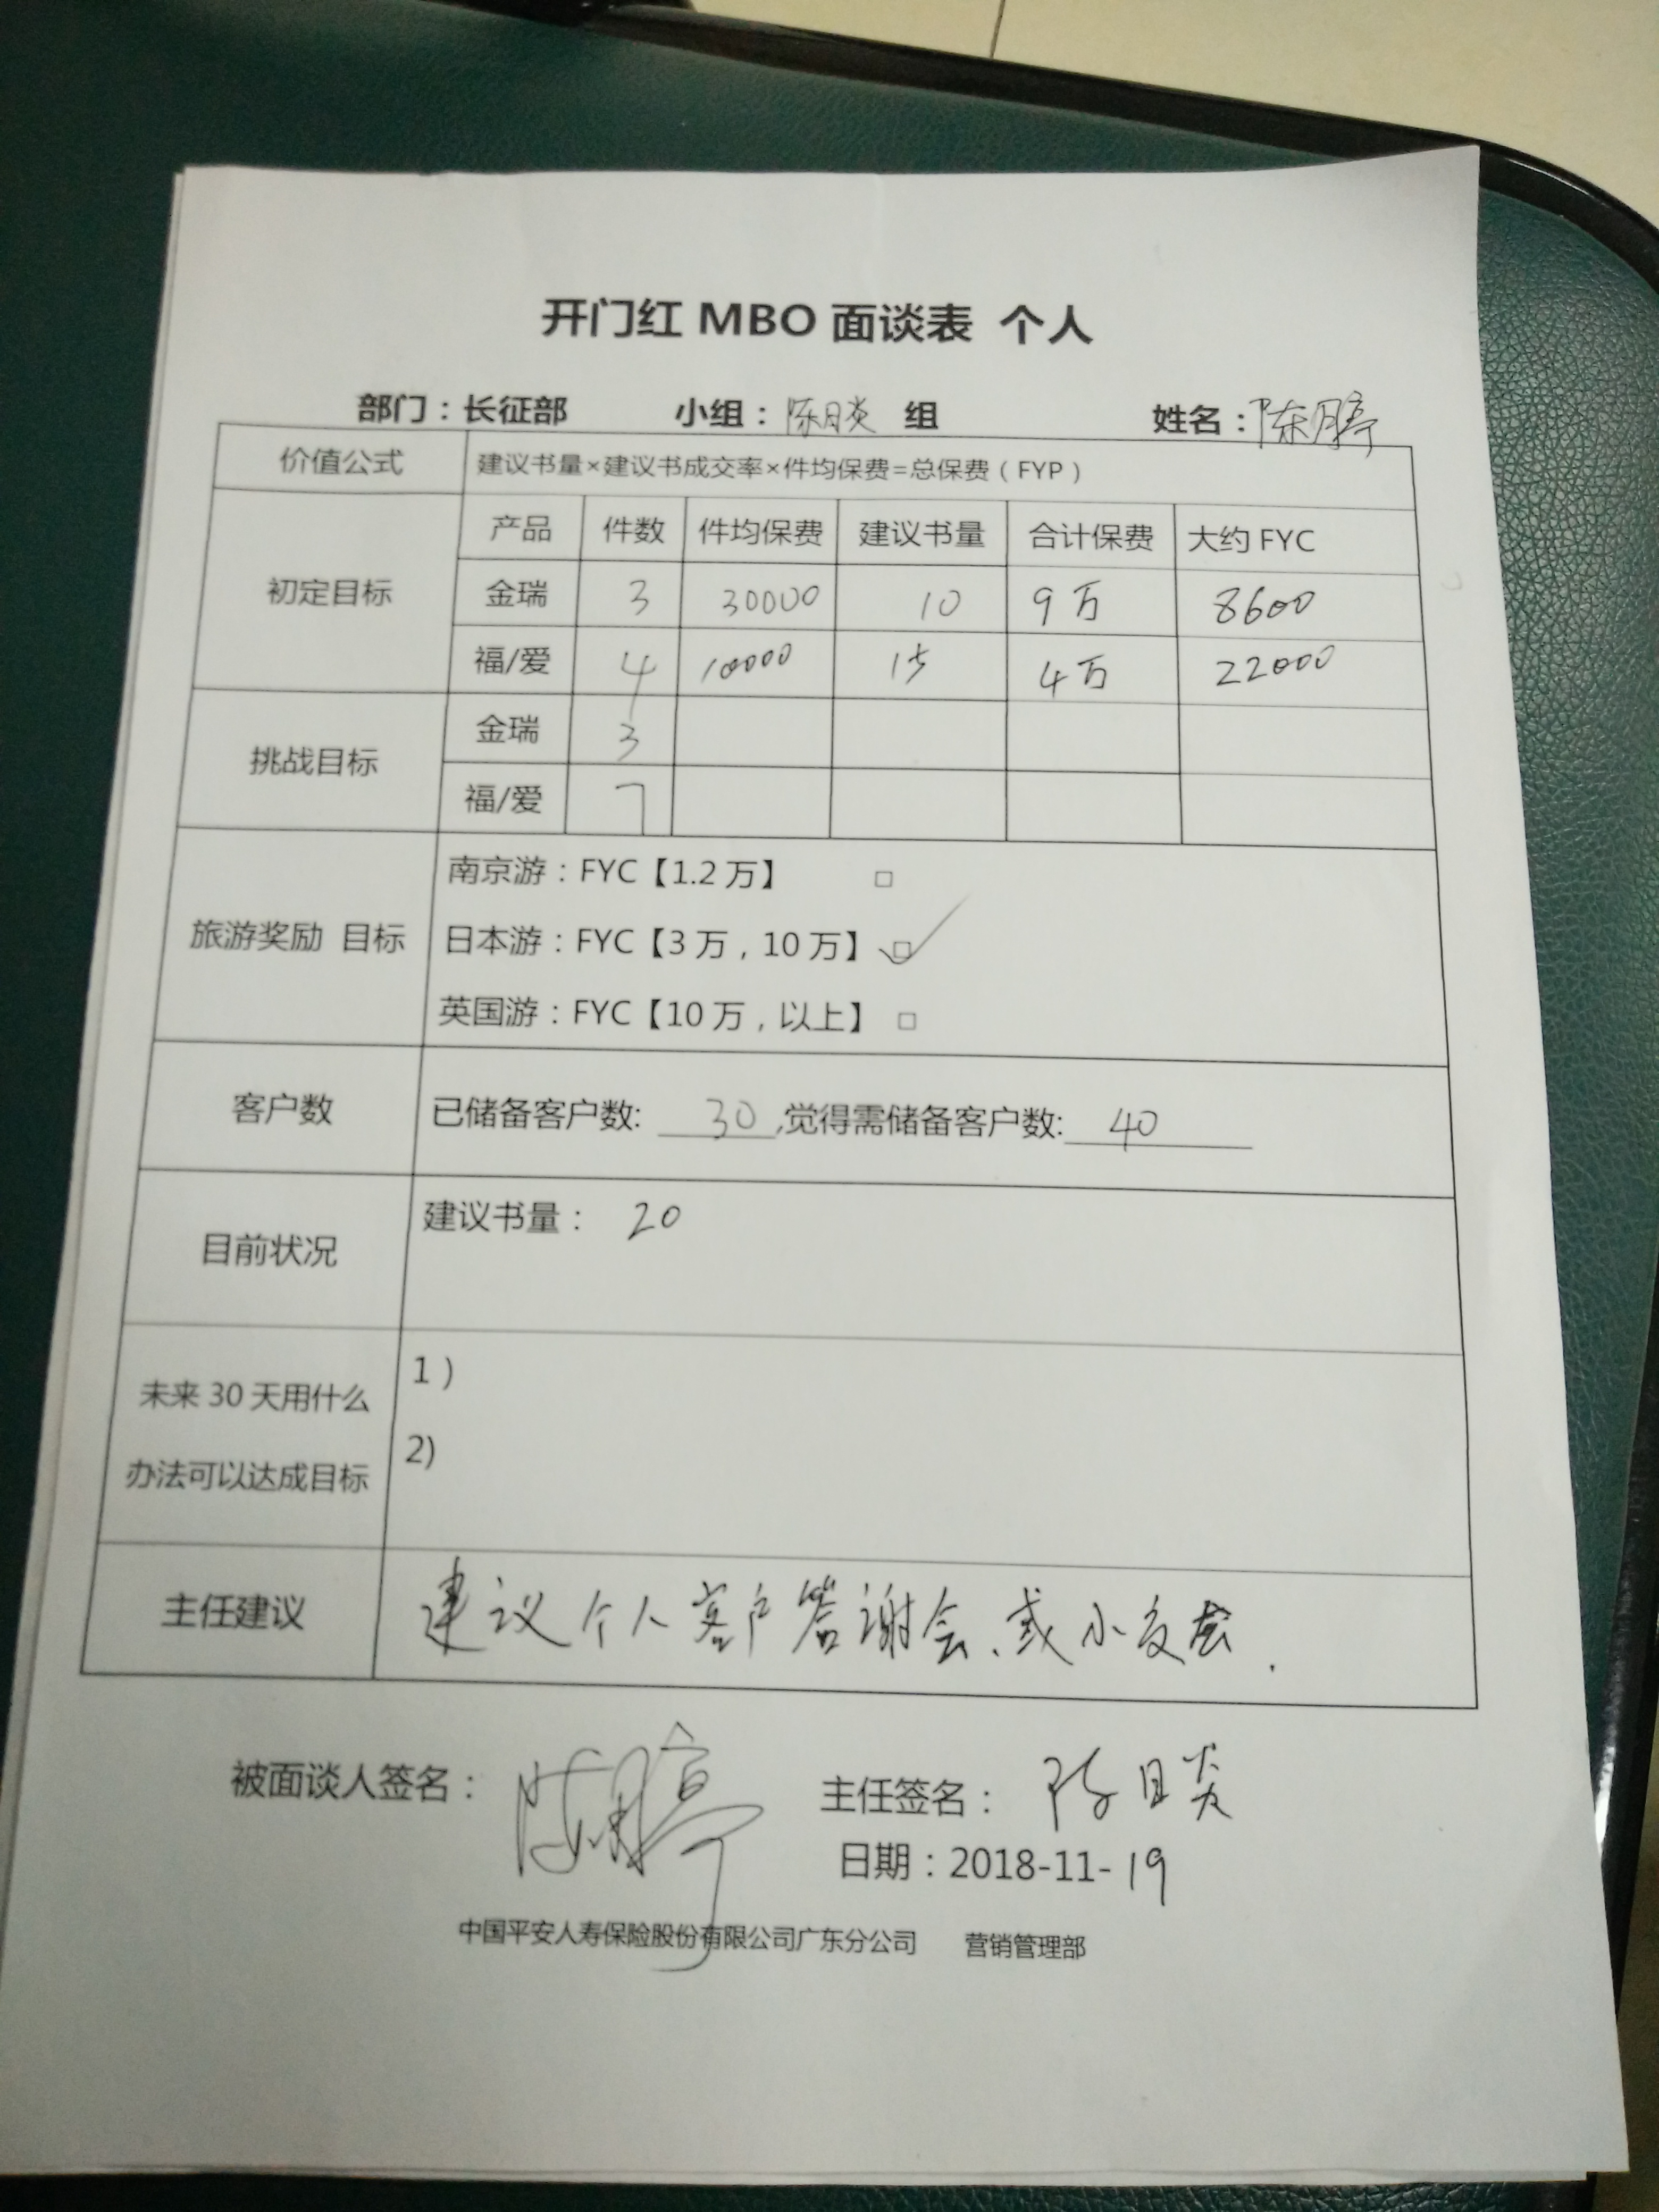 开门红 MBO 面谈表 个人
部门：长征部 小组：陈月炎 组 姓名：陈月婷
价值公式 建议书量×建议书成交率×件均保费=总保费（FYP）
初定目标 产品 件数 件均保费 建议书量 合计保费 大约 FYC
金瑞 3 30000 10 9万 8600
福/爱 4 10000 15 4万 22000
挑战目标 金瑞 3
福/爱 7
旅游奖励 目标 南京游：FYC【1.2 万】 □
日本游：FYC【3 万，10 万】 ☑
英国游：FYC【10 万，以上】 □
客户数 已储备客户数: 30 ,觉得需储备客户数: 40
目前状况 建议书量： 20
未来 30 天用什么
办法可以达成目标
1）
2)
主任建议 建议个人客户答谢会、或小交会.
被面谈人签名： 主任签名： 陈月炎
日期：2018-11-19
中国平安人寿保险股份有限公司广东分公司 营销管理部